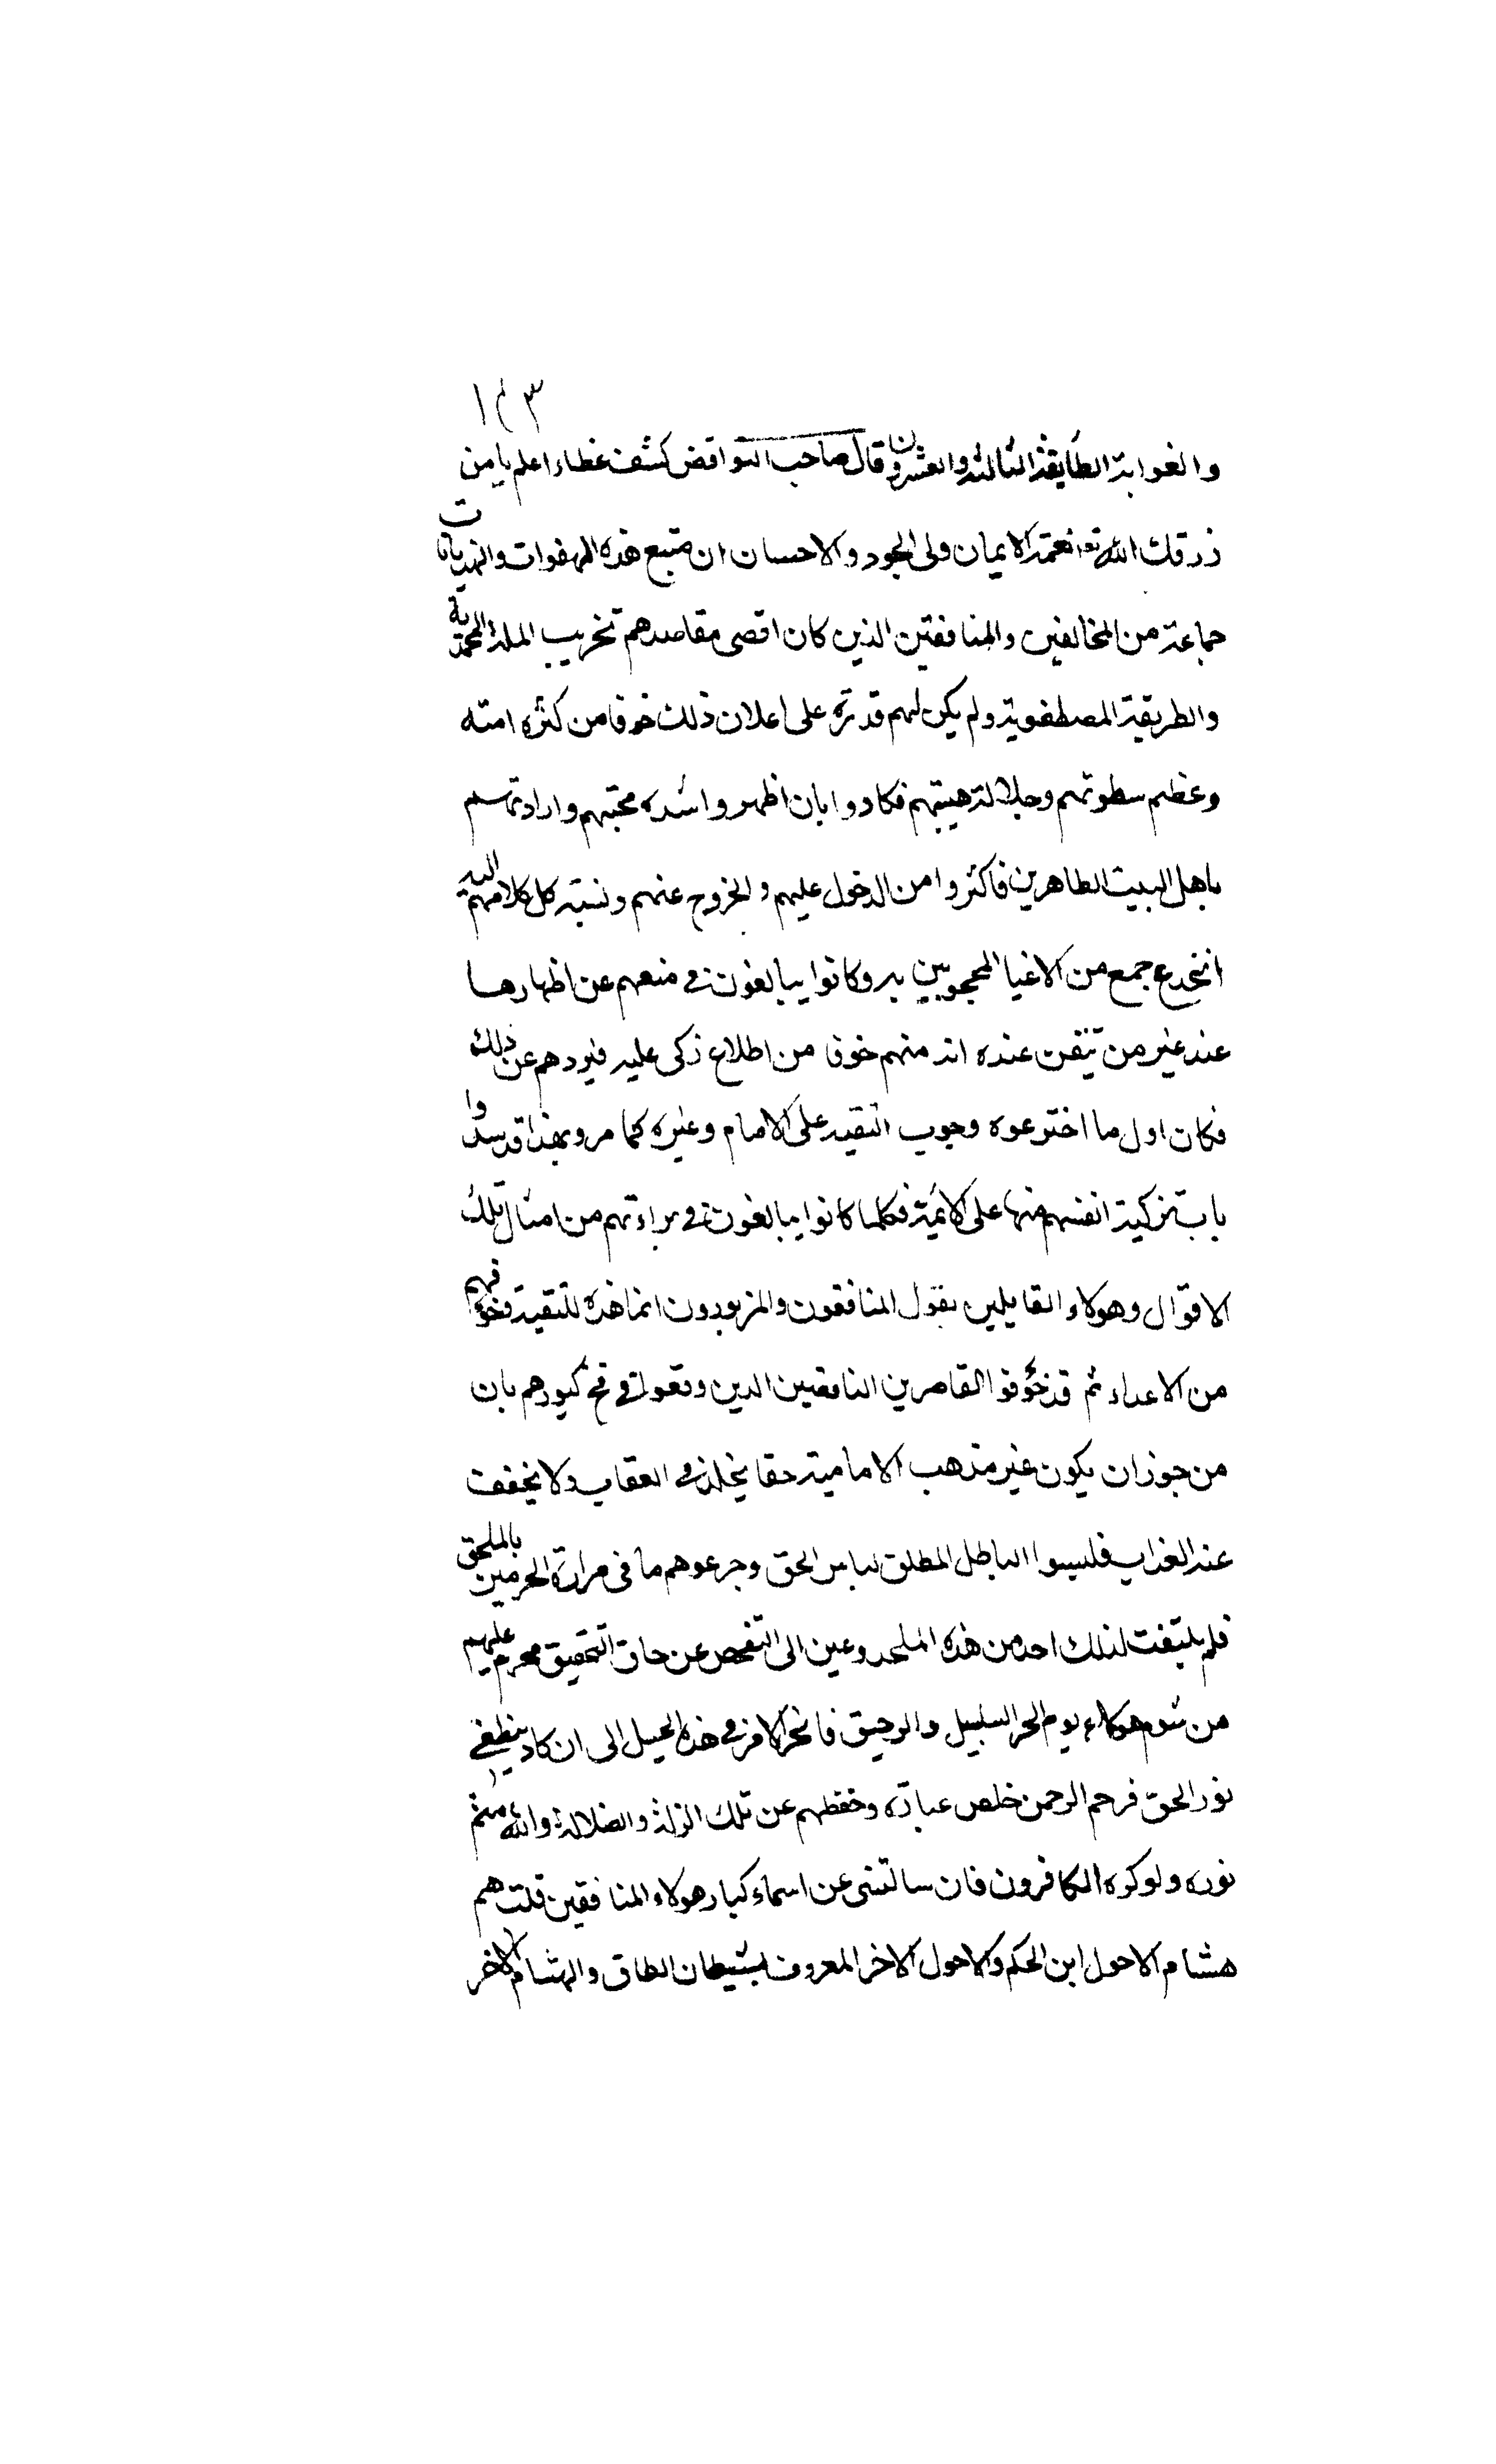 ١٤٣
والغواية الطايفة الثالثة والعشرون قال صاحب النواقض كشف غطاء اعلم يا من
رزقك الله تع نعمة الايمان ولى الجود والاحسان ان منبع هذه الهفوات والهذيانات
جماعة من المخالفين والمنافقين الذين كان اقصى مقاصدهم تخريب الملة المحمدية
والطريقة المصطفوية ولم يكن لهم قدرة على اعلان ذلك خوفا من كثرة امته
وعظم سطوتهم وجلالة هيبتهم فكادوا بان اظهروا شدة محبتهم وارادتهم
باهل البيت الطاهرين فاكثروا من الدخول عليهم والخروج عنهم ونسبة كل كلامهم اليه
انخدع جمع من الاغبيا المحجوبين به وكانوا يبالغون في منعهم عن اظهارها
عند غير من تيقن عنده انه منهم خوفا من اطلاع زكى عليه فيردهم عن ذلك
فكان اول ما اخترعوه وجوب التقية على الامام وغيره كما مر وبهذا قد سدوا
باب تزكية انفسهم منها على الائمة فكلما كانوا يبالغون في براءتهم من امثال تلك
الاقوال وهولاء القايلين يقول المنافقون والمزبورون انما هذه للتقية وخوفهم
من الاعداء ثم قد خوفوا القاصرين الناقصين الذين وقعوا في فخ كيدهم بان
من جوز ان يكون غير مذهب الامامية حقا يخلد في العقاب ولا يخفف
عنه العذاب فلبسوا الباطل المطلق لباس الحق وجرعوهم ما في مرارة الحرمين بالملحق
فلم يلتفت لذلك احد من هذه المخدوعين الى التفحص عن حاق التحقيق محرم عليهم
من شوم هولاء يوم الحر السلسبيل والرحيق فانجر الامر في هذه الحيل الى ان كاد ينطفى
نور الحق فرحم الرحمن خلص عباده وحفظهم عن تلك الزلة والضلالة والله متم
نوره ولو كره الكافرون فان سالتنى عن اسماء كبار هولاء المنافقين قلت هم
هشام الاحول ابن الحكم والاحول الاخر المعروف بشيطان الطاق والهشام الاخر